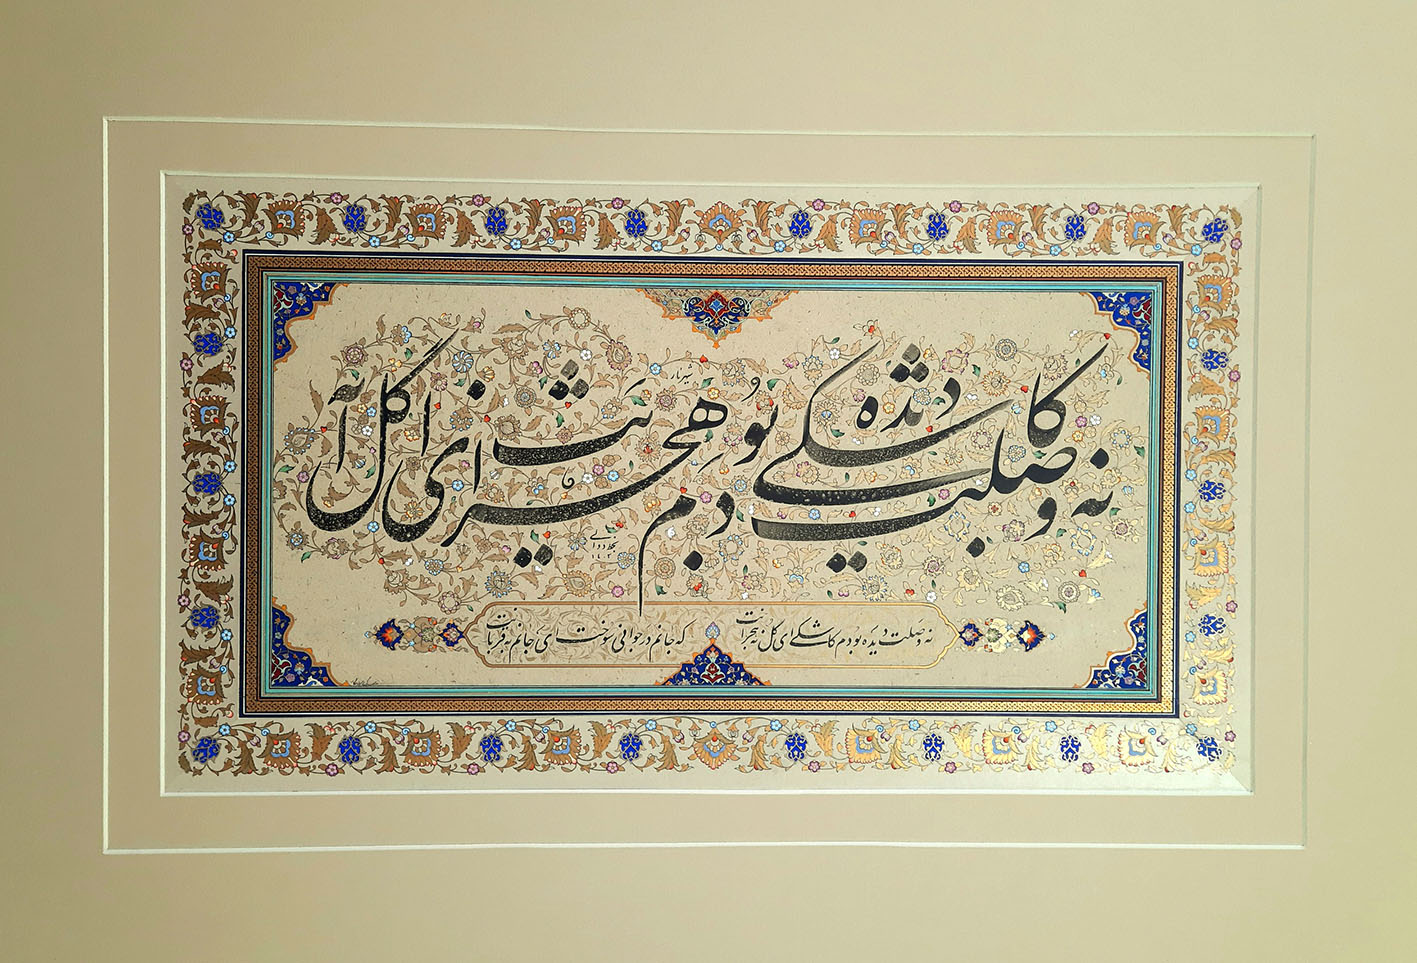 نه وصلت دیده بودم کاشکی ای گل نه هجرانت
شهریار
نه وصلت دیده بودم کاشکی ای گل نه هجرانت که جانم در جوانی سوخت ای جانم به قربانت